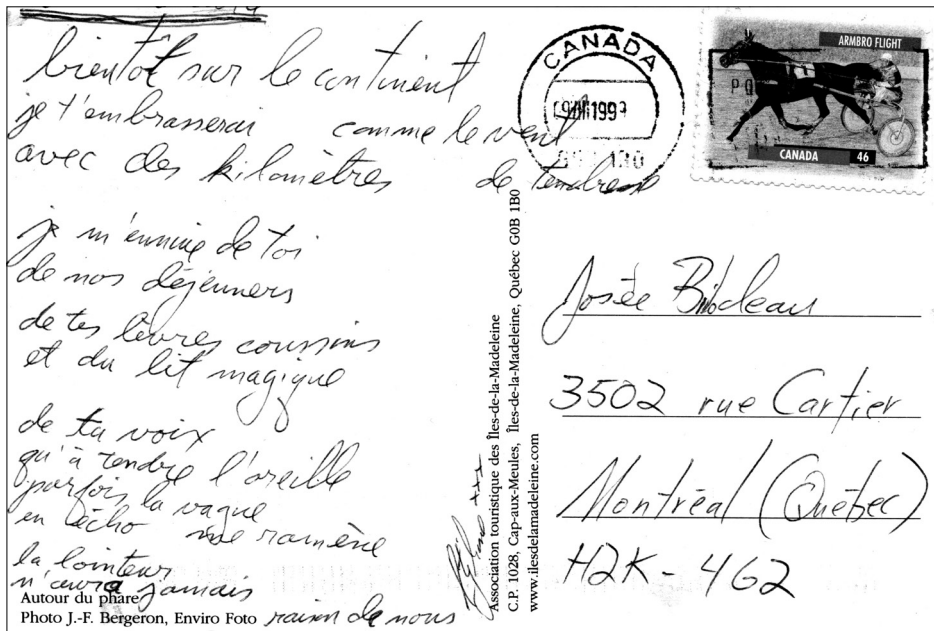 bientôt sur le continent
je t'embrasserai comme le vent
avec des kilomètres de tendresse
je m'ennuie de toi
de nos déjeuners
de tes lèvres coussins
et du lit magique
de ta voix
qu'à tendre l'oreille
parfois la vague
en écho me ramène
la lointeur
n'aura jamais
raison de nous
xxx
Autour du phare
Photo J.-F. Bergeron, Enviro Foto
Association touristique des Îles-de-la-Madeleine
C.P. 1028, Cap-aux-Meules, Îles-de-la-Madeleine, Québec G0B 1B0
www.ilesdelamadeleine.com
CANADA
1999
ARMBRO FLIGHT
CANADA 46
Josée Bilodeau
3502 rue Cartier
Montréal (Québec)
H2K-4G2